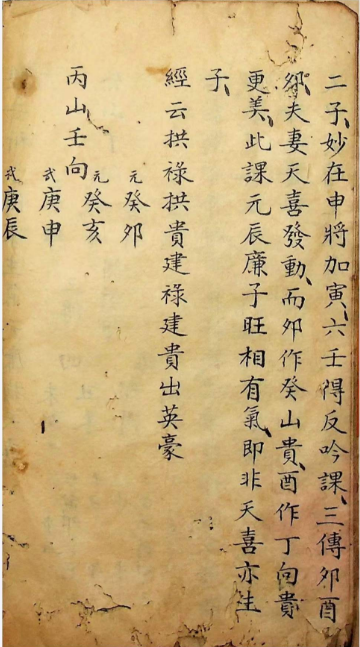 二子、妙在申將加寅、六壬得反吟課、三傳夘酉
夘、夫妻天喜發動、而夘作癸山貴、酉作丁向貴
更美、此課元辰廉子旺相有氣、即非天喜亦生
子、
經云拱祿拱貴建祿建貴出英豪
元癸夘
丙山壬向
元癸亥
弍庚申
弍庚辰